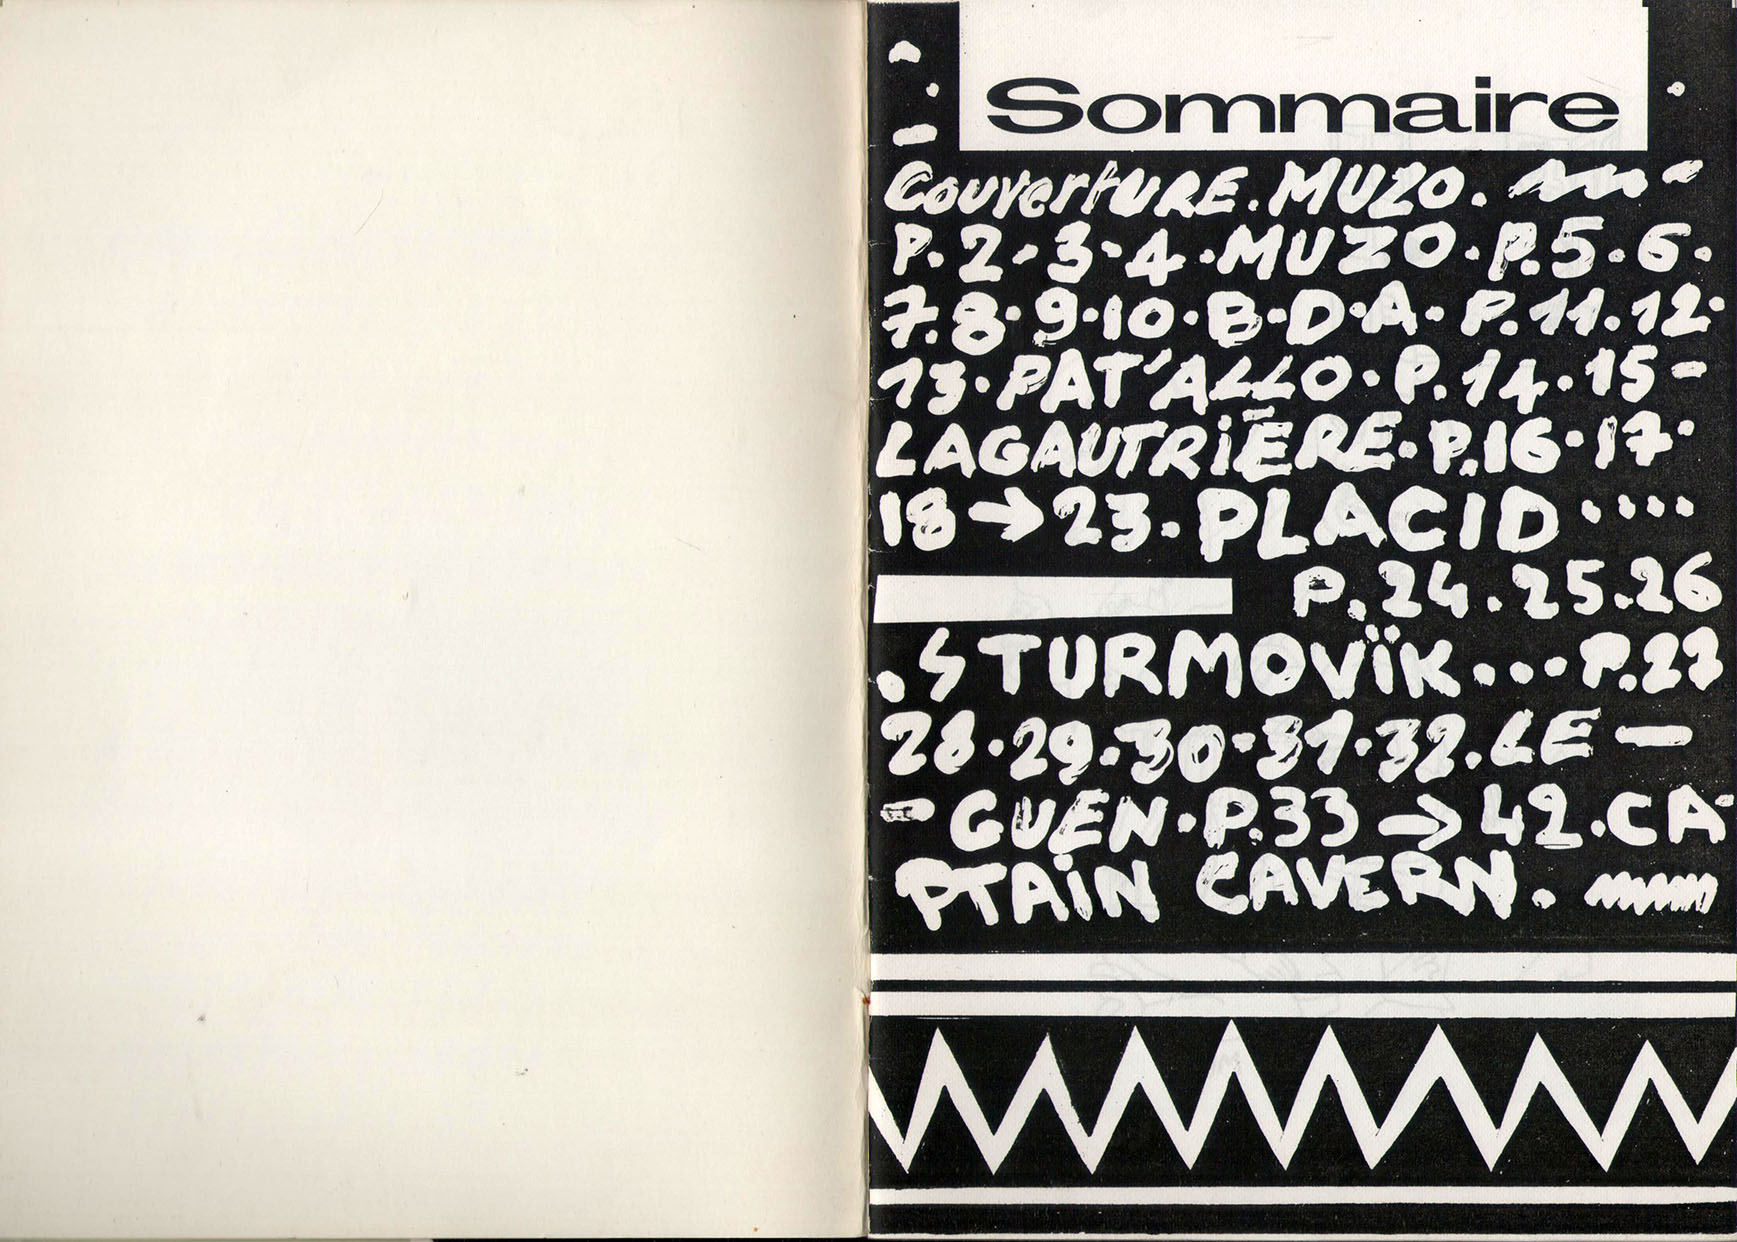 Sommaire
CouvertURE. MUZO.
P. 2 · 3 · 4 · MUZO · P. 5 · 6 ·
7. 8 · 9 · 10 · B · D · A · P. 11. 12 ·
13 · PAT'ALLO · P. 14 · 15 -
LAGAUTRiÈRE · P. 16 · 17 ·
18 → 23 · PLACID ····
P. 24 . 25 . 26
. STURMOVÏK ... P. 27
28 · 29 . 30 · 31 · 32. LE —
- GUEN · P. 33 → 42. CA-
PTAiN CAVERN.